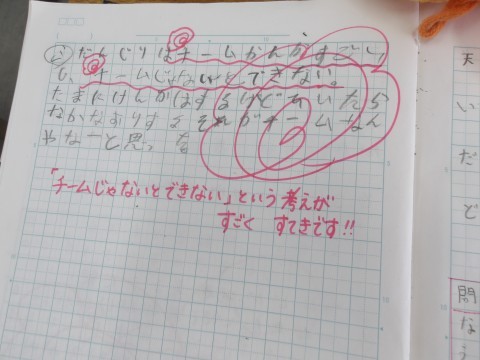 だんじりはチームかんがすごい
し、チームじゃないとできない。
たまにけんかはするけど
なかなおりする それがチームなん
やなーと思った
「チームじゃないとできない」という考えが
すごく すてきです!!
天
い
だ
ど
問
な